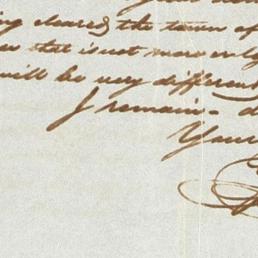 cleared, the town of
that is not more
will be very different
I remain-
Your